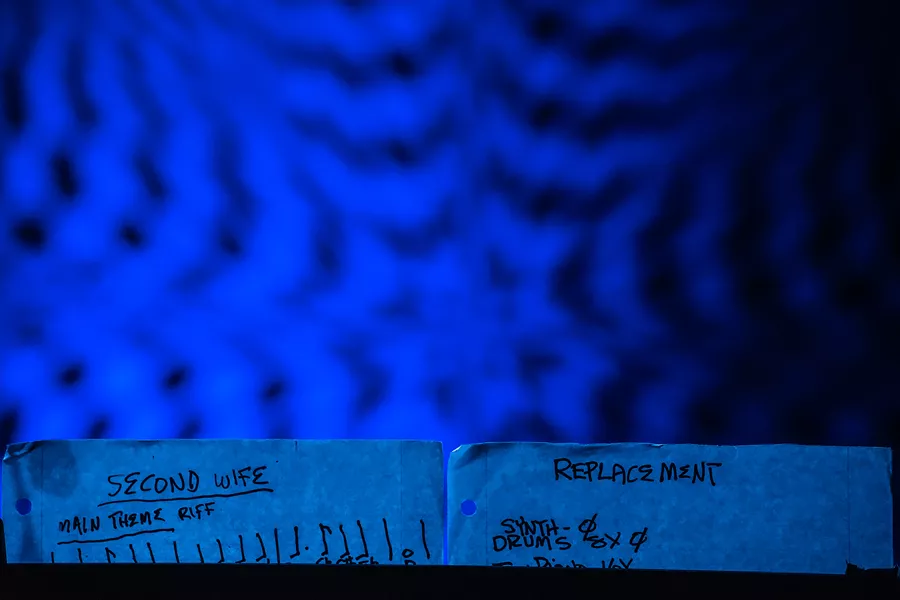 SECOND WIFE
MAIN THEME RIFF
REPLACEMENT
SYNTH - Ø
DRUMS 8X Ø